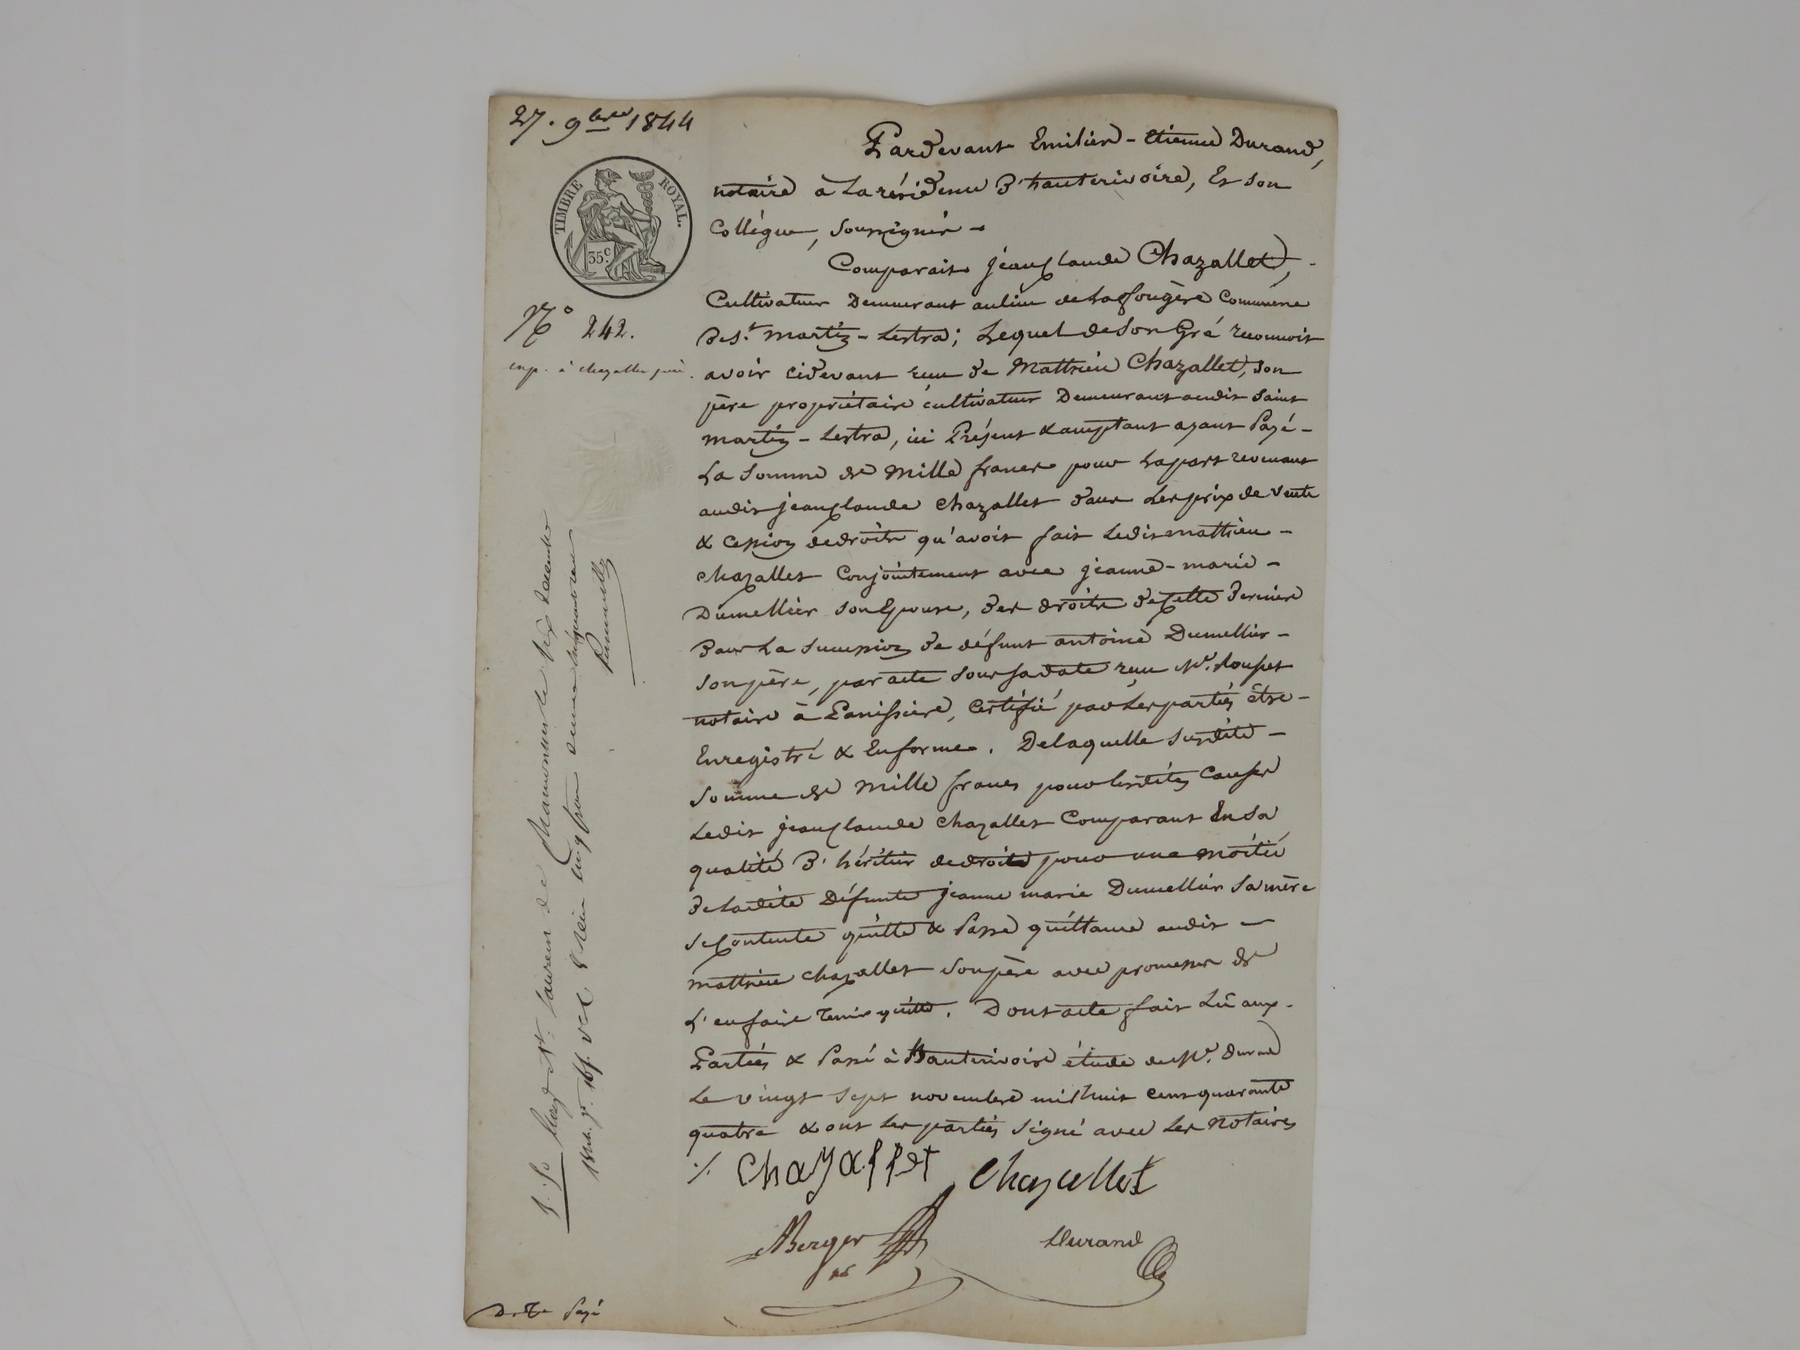 27. 9bre 1844
TIMBRE ROYAL.
35 c.
N° 242.
exp. à chazallet père.
Pardevant Emilien-Etienne Durand,
notaire à La résidence D'hauterivoire, Et son
Collègue, soussignés -
Comparait jean Claude Chazallet, -
Cultivateur Demeurant au lieu de La fougère Commune
De St. Martin-Lestra; Lequel de son Gré reconnoit
avoir cidevant reçu de Matthieu Chazallet, son
père propriétaire cultivateur Demeurant audit Saint
Martin-Lestra, ici Présent & acceptant ayant Payé -
La Somme de Mille francs pour La part revenant
audit jean Claude Chazallet dans Les prix de Vente
& Cession de droits qu'avoit fait Ledit mathieu -
chazallet Conjointement avec jeanne-marie -
Dumellier son Epouse, des droits de Cette Dernière
Dans La Succession de défunt antoine Dumellier -
Son père, par acte sous sa date reçu Me.
notaire à Panissière, Certifié par Les parties être -
Enregistré & En forme. De laquelle Susdite -
Somme de Mille francs pour les dites Causes
Ledit jean Claude chazallet Comparant En Sa
qualité D'héritier de droit pour une moitié
De Ladite Défunte jeanne marie Dumellier Sa mère
Se Contente quitte & Passe quittance audit -
matthieu chazallet Son père avec promesse de
L'en faire Tenir quitte. Dont acte fait Lû aux -
Parties & Passé à Hauterivoire étude de Me. Durand
Le vingt sept novembre mil huit cent quarante
quatre & ont Les parties signé avec Les Notaires
./. Chazallet Chazallet
Berger Durand
St. Laurent de Chamousset le six décembre
1844. fo. 161. Vo. C. Reçu cinq francs
Payé